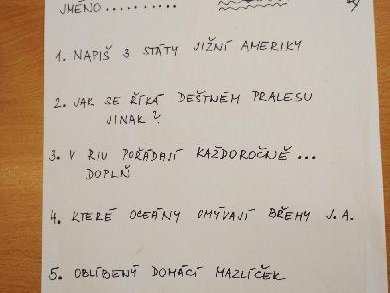 JMÉNO..........
1. NAPIŠ 3 STÁTY JIŽNÍ AMERIKY
2. JAK SE ŘÍKÁ DEŠTNÉM PRALESU
JINAK?
3. V RIU POŘÁDAJÍ KAŽDOROČNĚ...
DOPLŇ
4. KTERÉ OCEÁNY OMÝVAJÍ BŘEHY J.A.
5. OBLÍBENÝ DOMÁCÍ MAZLÍČEK